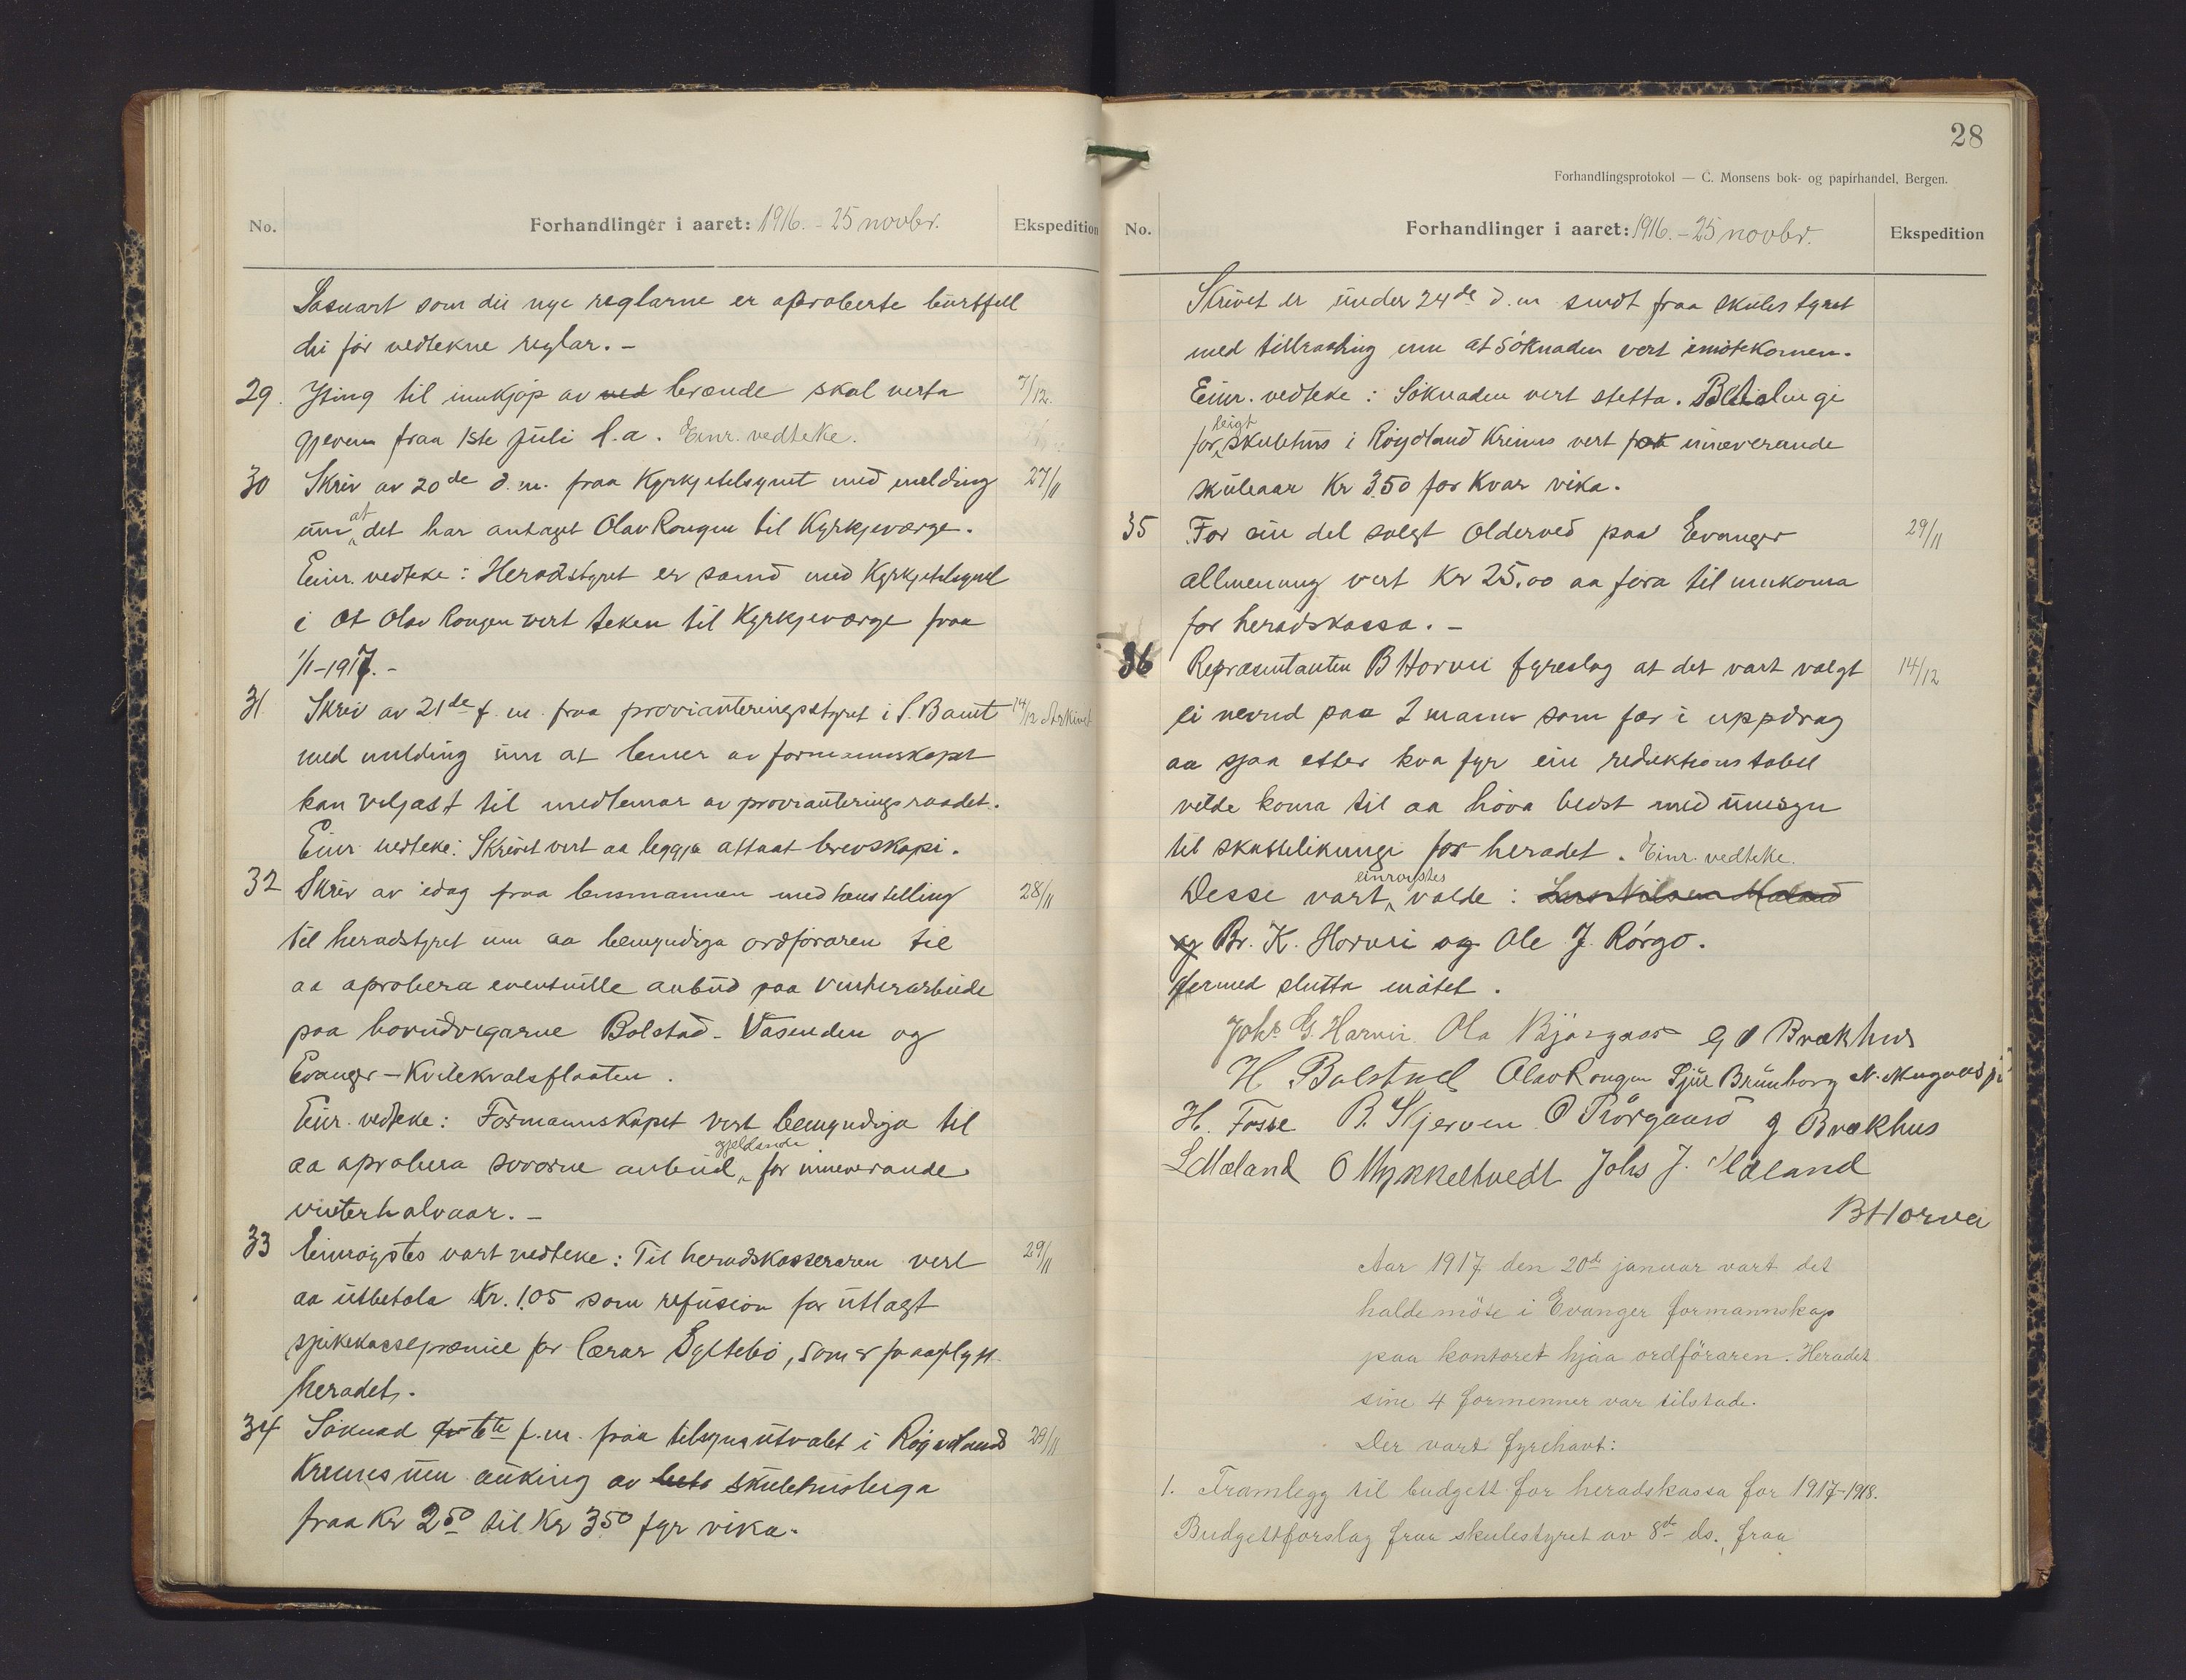 No. Forhandlinger i aaret: 1916. - 25 novbr. Ekspedition
Sosnart som dei nye reglarne er aproberte burtfell
dei før vedtekne reglar. -
29. Yting til innkjøp av ved brænde skal verta 7/12.
gjeven fraa 1ste juli l. a. Einr. vedteke.
30 Skriv av 20de d. m. fraa Kyrkjetilsynet med melding 27/11
um at det har antaget Olav Rongen til Kyrkjeværge.
Einr. vedteke: Heradstyret er samd med Kyrkjetilsynet
i at Olav Rongen vert teken til Kyrkjeværge fraa
1/1-1917. -
31 Skriv av 21de f. m. fraa provianteringsstyret i S. B.amt 14/12 Arkivet
med melding um at lemer av formannskapet
kan veljast til medlemar av provianteringsraadet.
Einr vedteke: Skrivet vert aa leggja attaat brevskapi.
32 Skriv av idag fraa lensmannen med henstelling 28/11
til heradstyret um aa bemyndiga ordføraren til
aa aprobera eventuelle anbud paa vinterarbeide
paa hovudvegarne Bolstad - Vasenden og
Evanger - Kvilekvalsflaaten.
Einr. vedteke: Formannskapet vert bemyndiga til
aa aprobera sovorne anbud, gjeldande for inneverande
vinterhalvaar. -
33 Einrøystes vart vedteke: Til heradskasseraren vert 29/11
aa utbetala Kr. 1.05 som refusion for utlagt
sjukekassepræmie for lærar Syltebø, som er fraaflytt
heradet.
34 Søknad av 6te f. m. fraa tilsynsutvalet i Røyrdland 29/11
Kreins um auking av skulehusleiga
fraa Kr 2.50 til Kr 3.50 fyr vika.
28
Forhandlingsprotokol — C. Monsens bok- og papirhandel, Bergen.
No. Forhandlinger i aaret: 1916. - 25 novbr. Ekspedition
Skrivet er under 24de d. m sendt fraa skulestyret
med tilraading um at søknaden vert imøtekomen.
Einr. vedteke: Søknaden vert stetta. Betalingi
for leigt skulehus i Røyrdland Kreins vert for inneverande
skuleaar Kr 3.50 for kvar vika.
35 For ein del selgt olderved paa Evanger 29/11
allmenning vert Kr 25.00 aa føra til innkoma
for heradskassa. -
36 Repræsentanten B Horvei fyreslog at det vart valgt 14/12
ei nevnd paa 2 mann som fær i uppdrag
aa sjaa etter kva fyr ein reduktionstabell
vilde koma til aa høva bedst med umsyn
til skattelikningi for heradet. Einr. vedteke.
Desse vart einrøystes valde: Lars Nilsen Mæland
og Br. K. Horvei og Ole J. Rørgo.
Hermed slutta møtet.
Johs G. Horvei. Ola Bjørgaas G O Brækhus
H Bolstad Olav Rongen Sjur Brunborg N. Mugaas
H. Fosse B. Skjerven O Rørgaard G Brækhus
L Mæland O Mykkeltvedt Johs J. Mæland
B Horvei
Aar 1917 den 20de januar vart det
halde möte i Evanger formannskap
paa kontoret hjaa ordföraren. Heradet
sine 4 formenner var tilstade.
Der vart fyrehavt:
1. Framlegg til budgett for heradskassa for 1917-1918.
Budgettforslag fraa skulestyret av 8de ds., fraa